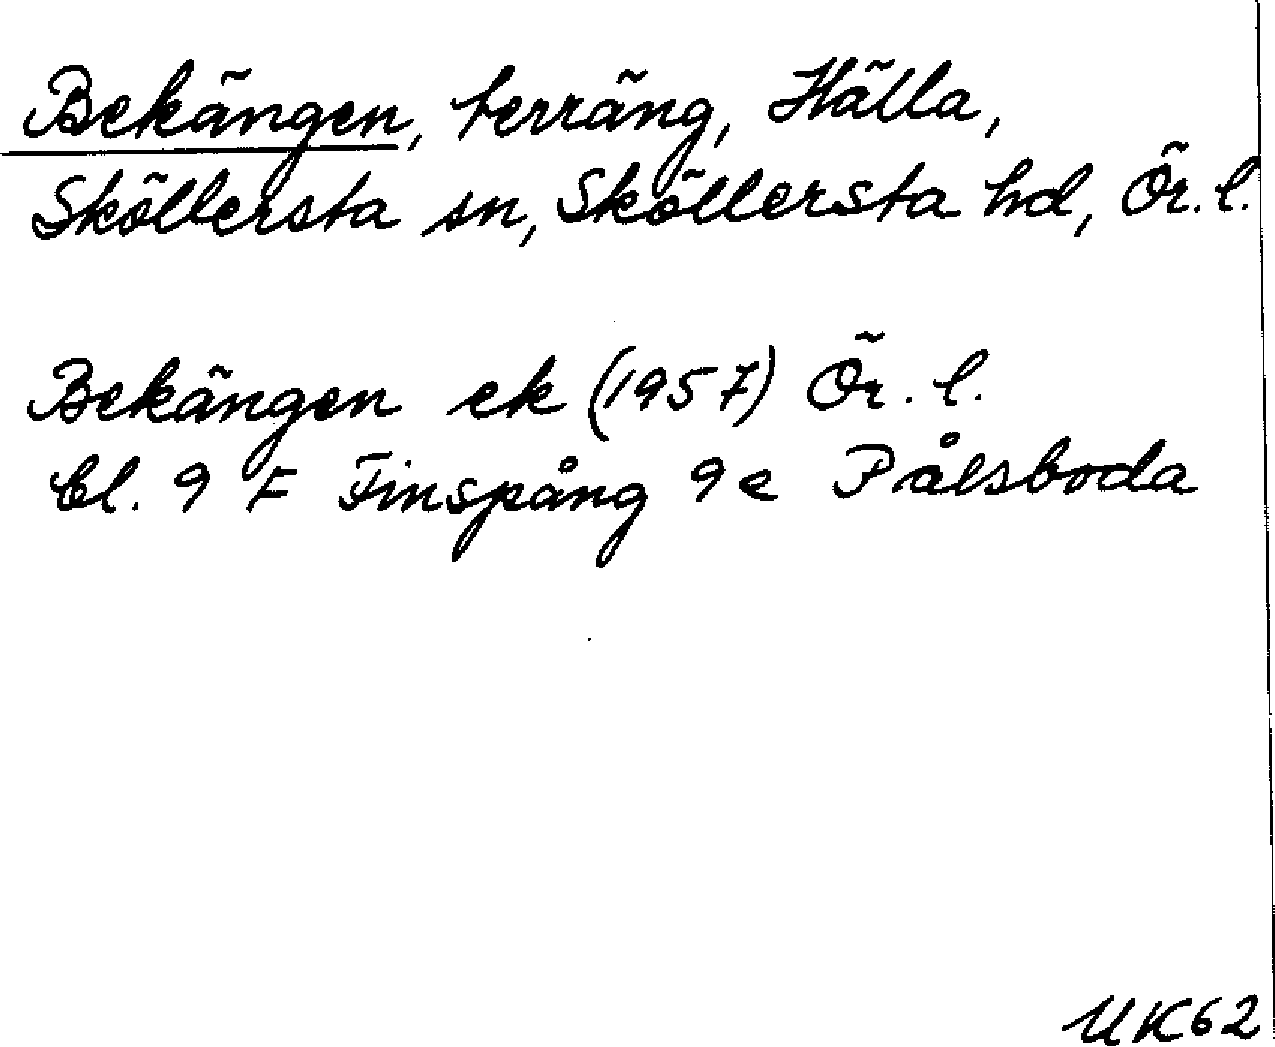 Bekängen, terräng, Hälla,
Sköllersta sn, Sköllersta hd, Ör. l.
Bekängen ek (1957) Ör. l.
bl. 9 F Finspång 9e Pålsboda
UK62